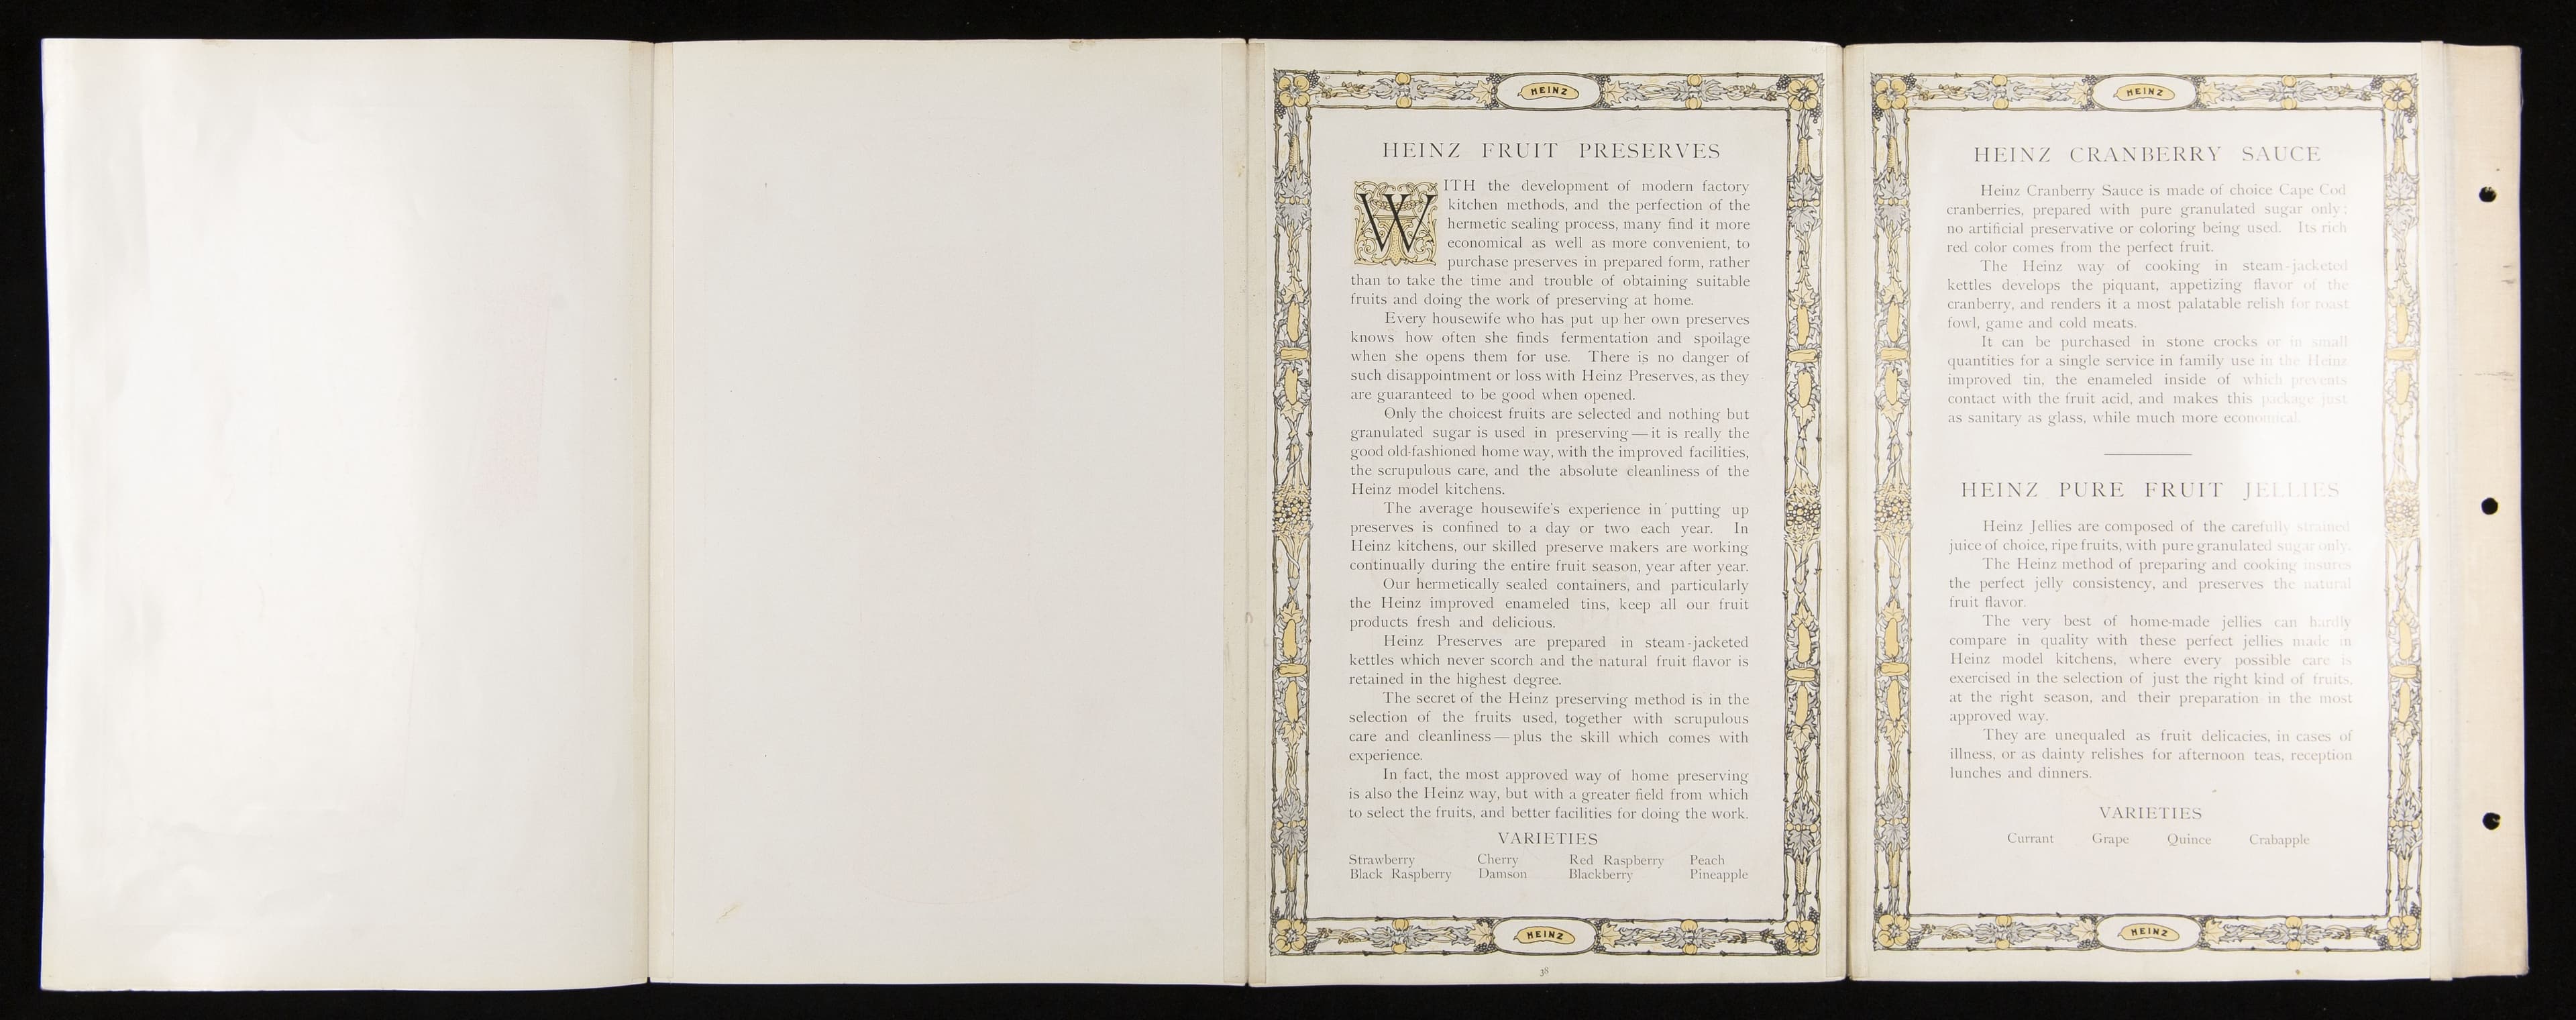 HEINZ
HEINZ FRUIT PRESERVES
WITH the development of modern factory
kitchen methods, and the perfection of the
hermetic sealing process, many find it more
economical as well as more convenient, to
purchase preserves in prepared form, rather
than to take the time and trouble of obtaining suitable
fruits and doing the work of preserving at home.
Every housewife who has put up her own preserves
knows how often she finds fermentation and spoilage
when she opens them for use. There is no danger of
such disappointment or loss with Heinz Preserves, as they
are guaranteed to be good when opened.
Only the choicest fruits are selected and nothing but
granulated sugar is used in preserving — it is really the
good old-fashioned home way, with the improved facilities,
the scrupulous care, and the absolute cleanliness of the
Heinz model kitchens.
The average housewife's experience in putting up
preserves is confined to a day or two each year. In
Heinz kitchens, our skilled preserve makers are working
continually during the entire fruit season, year after year.
Our hermetically sealed containers, and particularly
the Heinz improved enameled tins, keep all our fruit
products fresh and delicious.
Heinz Preserves are prepared in steam-jacketed
kettles which never scorch and the natural fruit flavor is
retained in the highest degree.
The secret of the Heinz preserving method is in the
selection of the fruits used, together with scrupulous
care and cleanliness — plus the skill which comes with
experience.
In fact, the most approved way of home preserving
is also the Heinz way, but with a greater field from which
to select the fruits, and better facilities for doing the work.
VARIETIES
Strawberry Cherry Red Raspberry Peach
Black Raspberry Damson Blackberry Pineapple
HEINZ
38
HEINZ
HEINZ CRANBERRY SAUCE
Heinz Cranberry Sauce is made of choice Cape Cod
cranberries, prepared with pure granulated sugar only;
no artificial preservative or coloring being used. Its rich
red color comes from the perfect fruit.
The Heinz way of cooking in steam-jacketed
kettles develops the piquant, appetizing flavor of the
cranberry, and renders it a most palatable relish for roast
fowl, game and cold meats.
It can be purchased in stone crocks or in small
quantities for a single service in family use in the Heinz
improved tin, the enameled inside of which prevents
contact with the fruit acid, and makes this package just
as sanitary as glass, while much more economical.
HEINZ PURE FRUIT JELLIES
Heinz Jellies are composed of the carefully strained
juice of choice, ripe fruits, with pure granulated sugar only.
The Heinz method of preparing and cooking insures
the perfect jelly consistency, and preserves the natural
fruit flavor.
The very best of home-made jellies can hardly
compare in quality with these perfect jellies made in
Heinz model kitchens, where every possible care is
exercised in the selection of just the right kind of fruits,
at the right season, and their preparation in the most
approved way.
They are unequaled as fruit delicacies, in cases of
illness, or as dainty relishes for afternoon teas, reception
lunches and dinners.
VARIETIES
Currant Grape Quince Crabapple
HEINZ